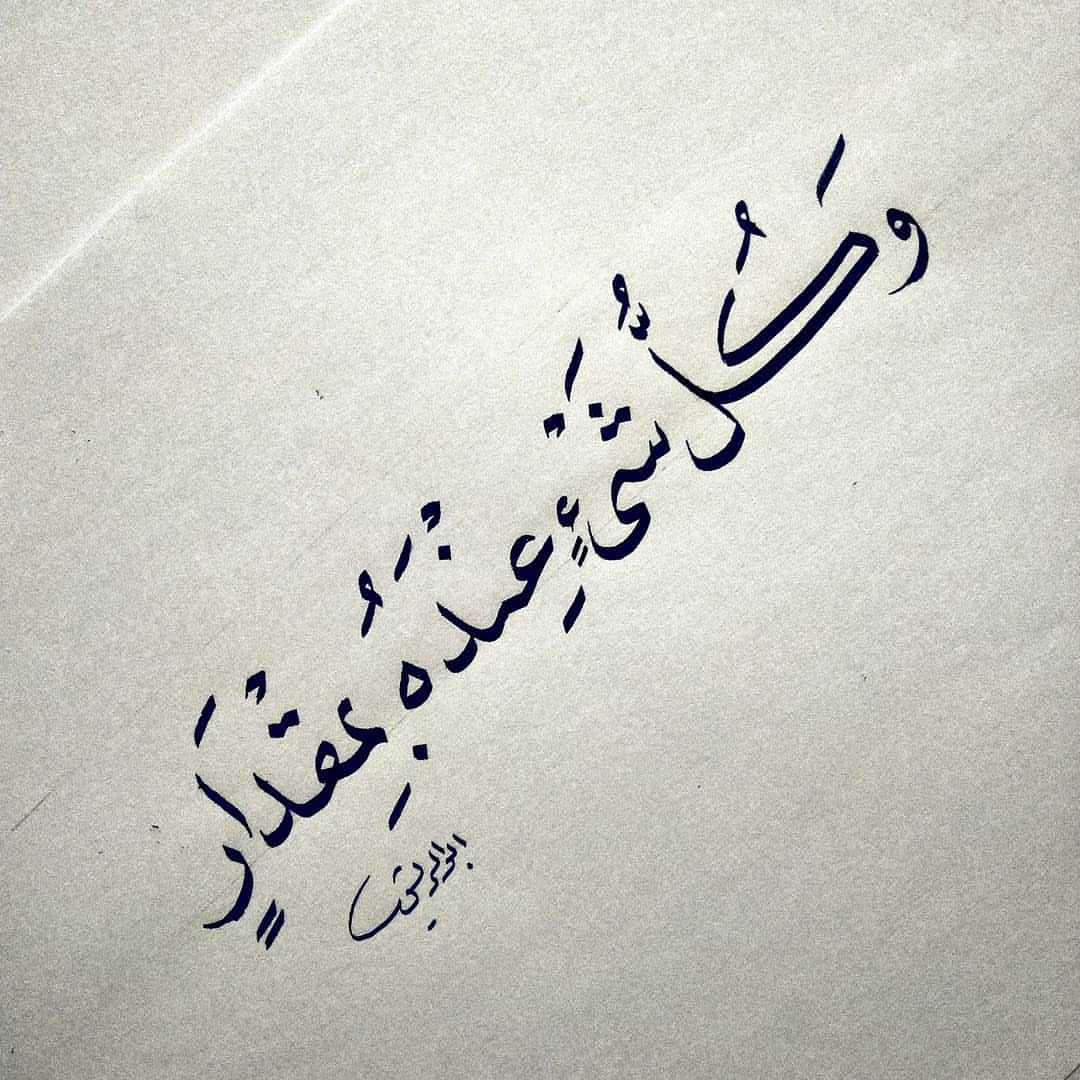 وَكُلُّ شَيْءٍ عِنْدَهُ بِمِقْدَارٍ